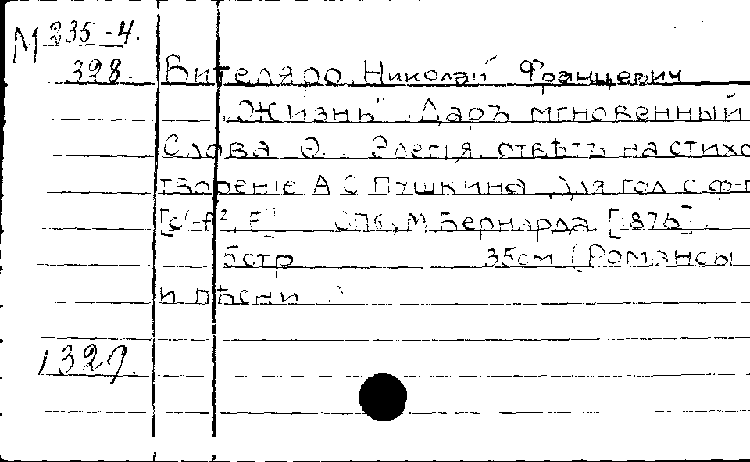 М 235-4.
398.
Вителяро, Николай Францевич
"Жизнь". Даръ мгновенный
Слова Ѳ. Элегія, отвѣтъ на стихо
твореніе А С Пушкина для гол с ф-п
[c¹-f², E] СПб, М Бернарда [1876].
5стр 35см (Романсы
и пѣсни
1327.